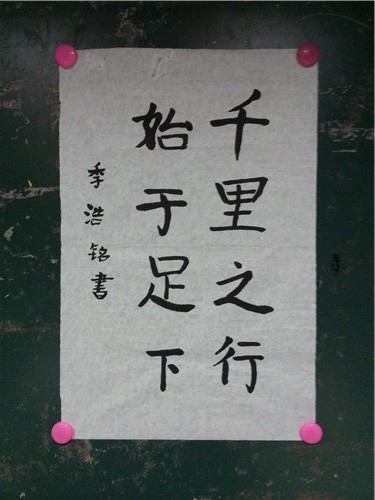 千里之行
始于足下
季浩铭書